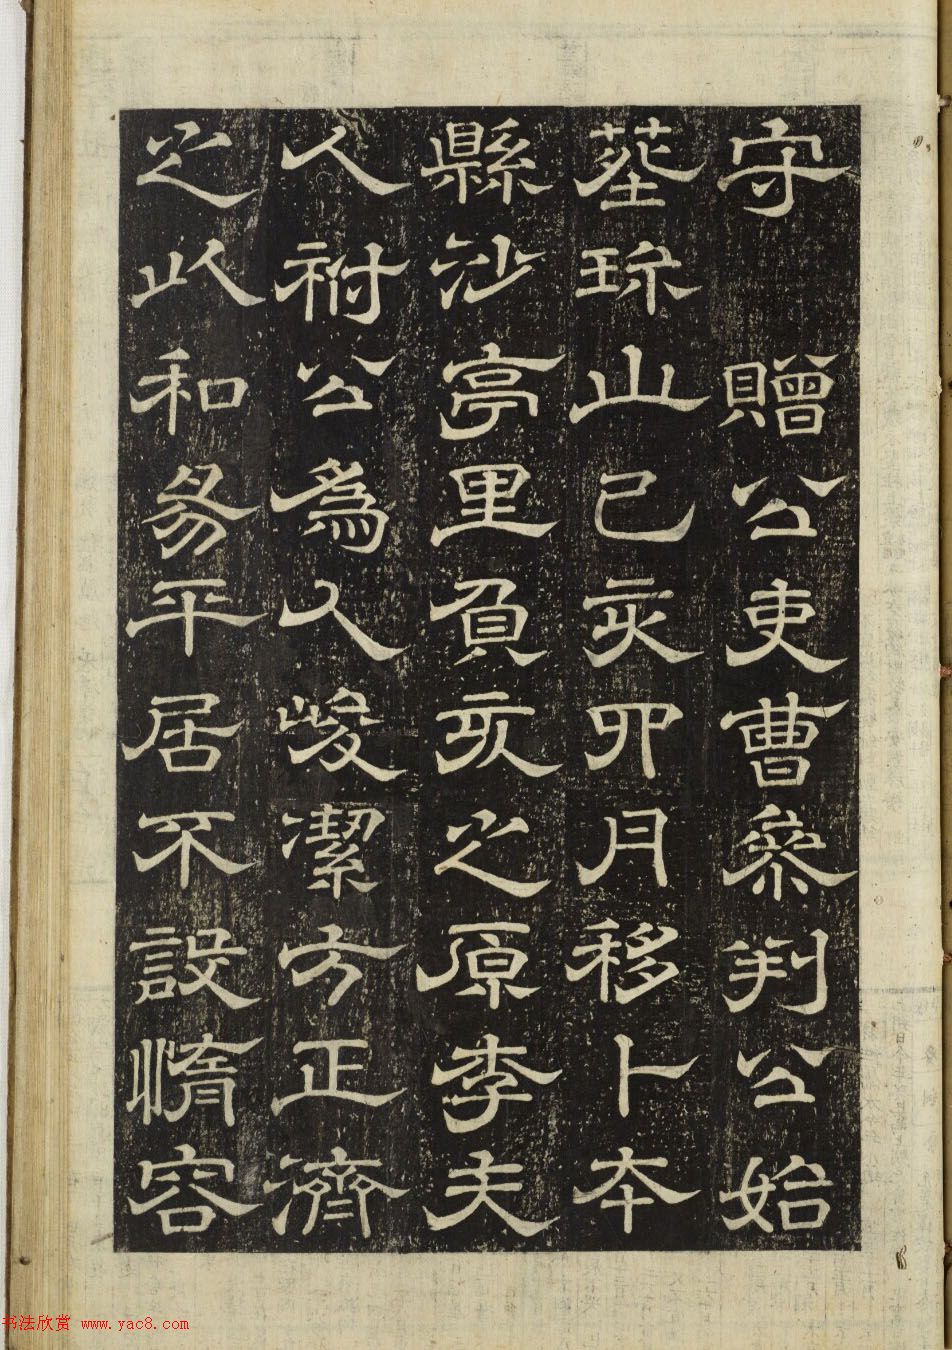 守　贈公吏曹參判公始
葬珎山己亥卯月移卜本
縣沙亭里負亥之原李夫
人祔公爲人峻潔方正濟
之以和易平居不設惰容
书法欣赏 www.yac8.com